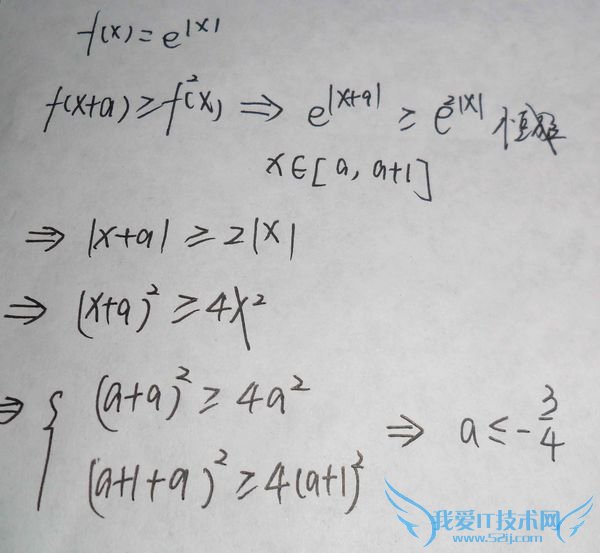 f(x)=e^{|x|}
f(x+a)≥f²(x) ⇒ e^{|x+a|} ≥ e^{2|x|} 恒
x∈[a, a+1]
⇒ |x+a| ≥ 2|x|
⇒ (x+a)² ≥ 4x²
⇒ { (a+a)² ≥ 4a²
(a+1+a)² ≥ 4(a+1)² ⇒ a ≤ -3/4
我爱IT技术网
www.52ij.com